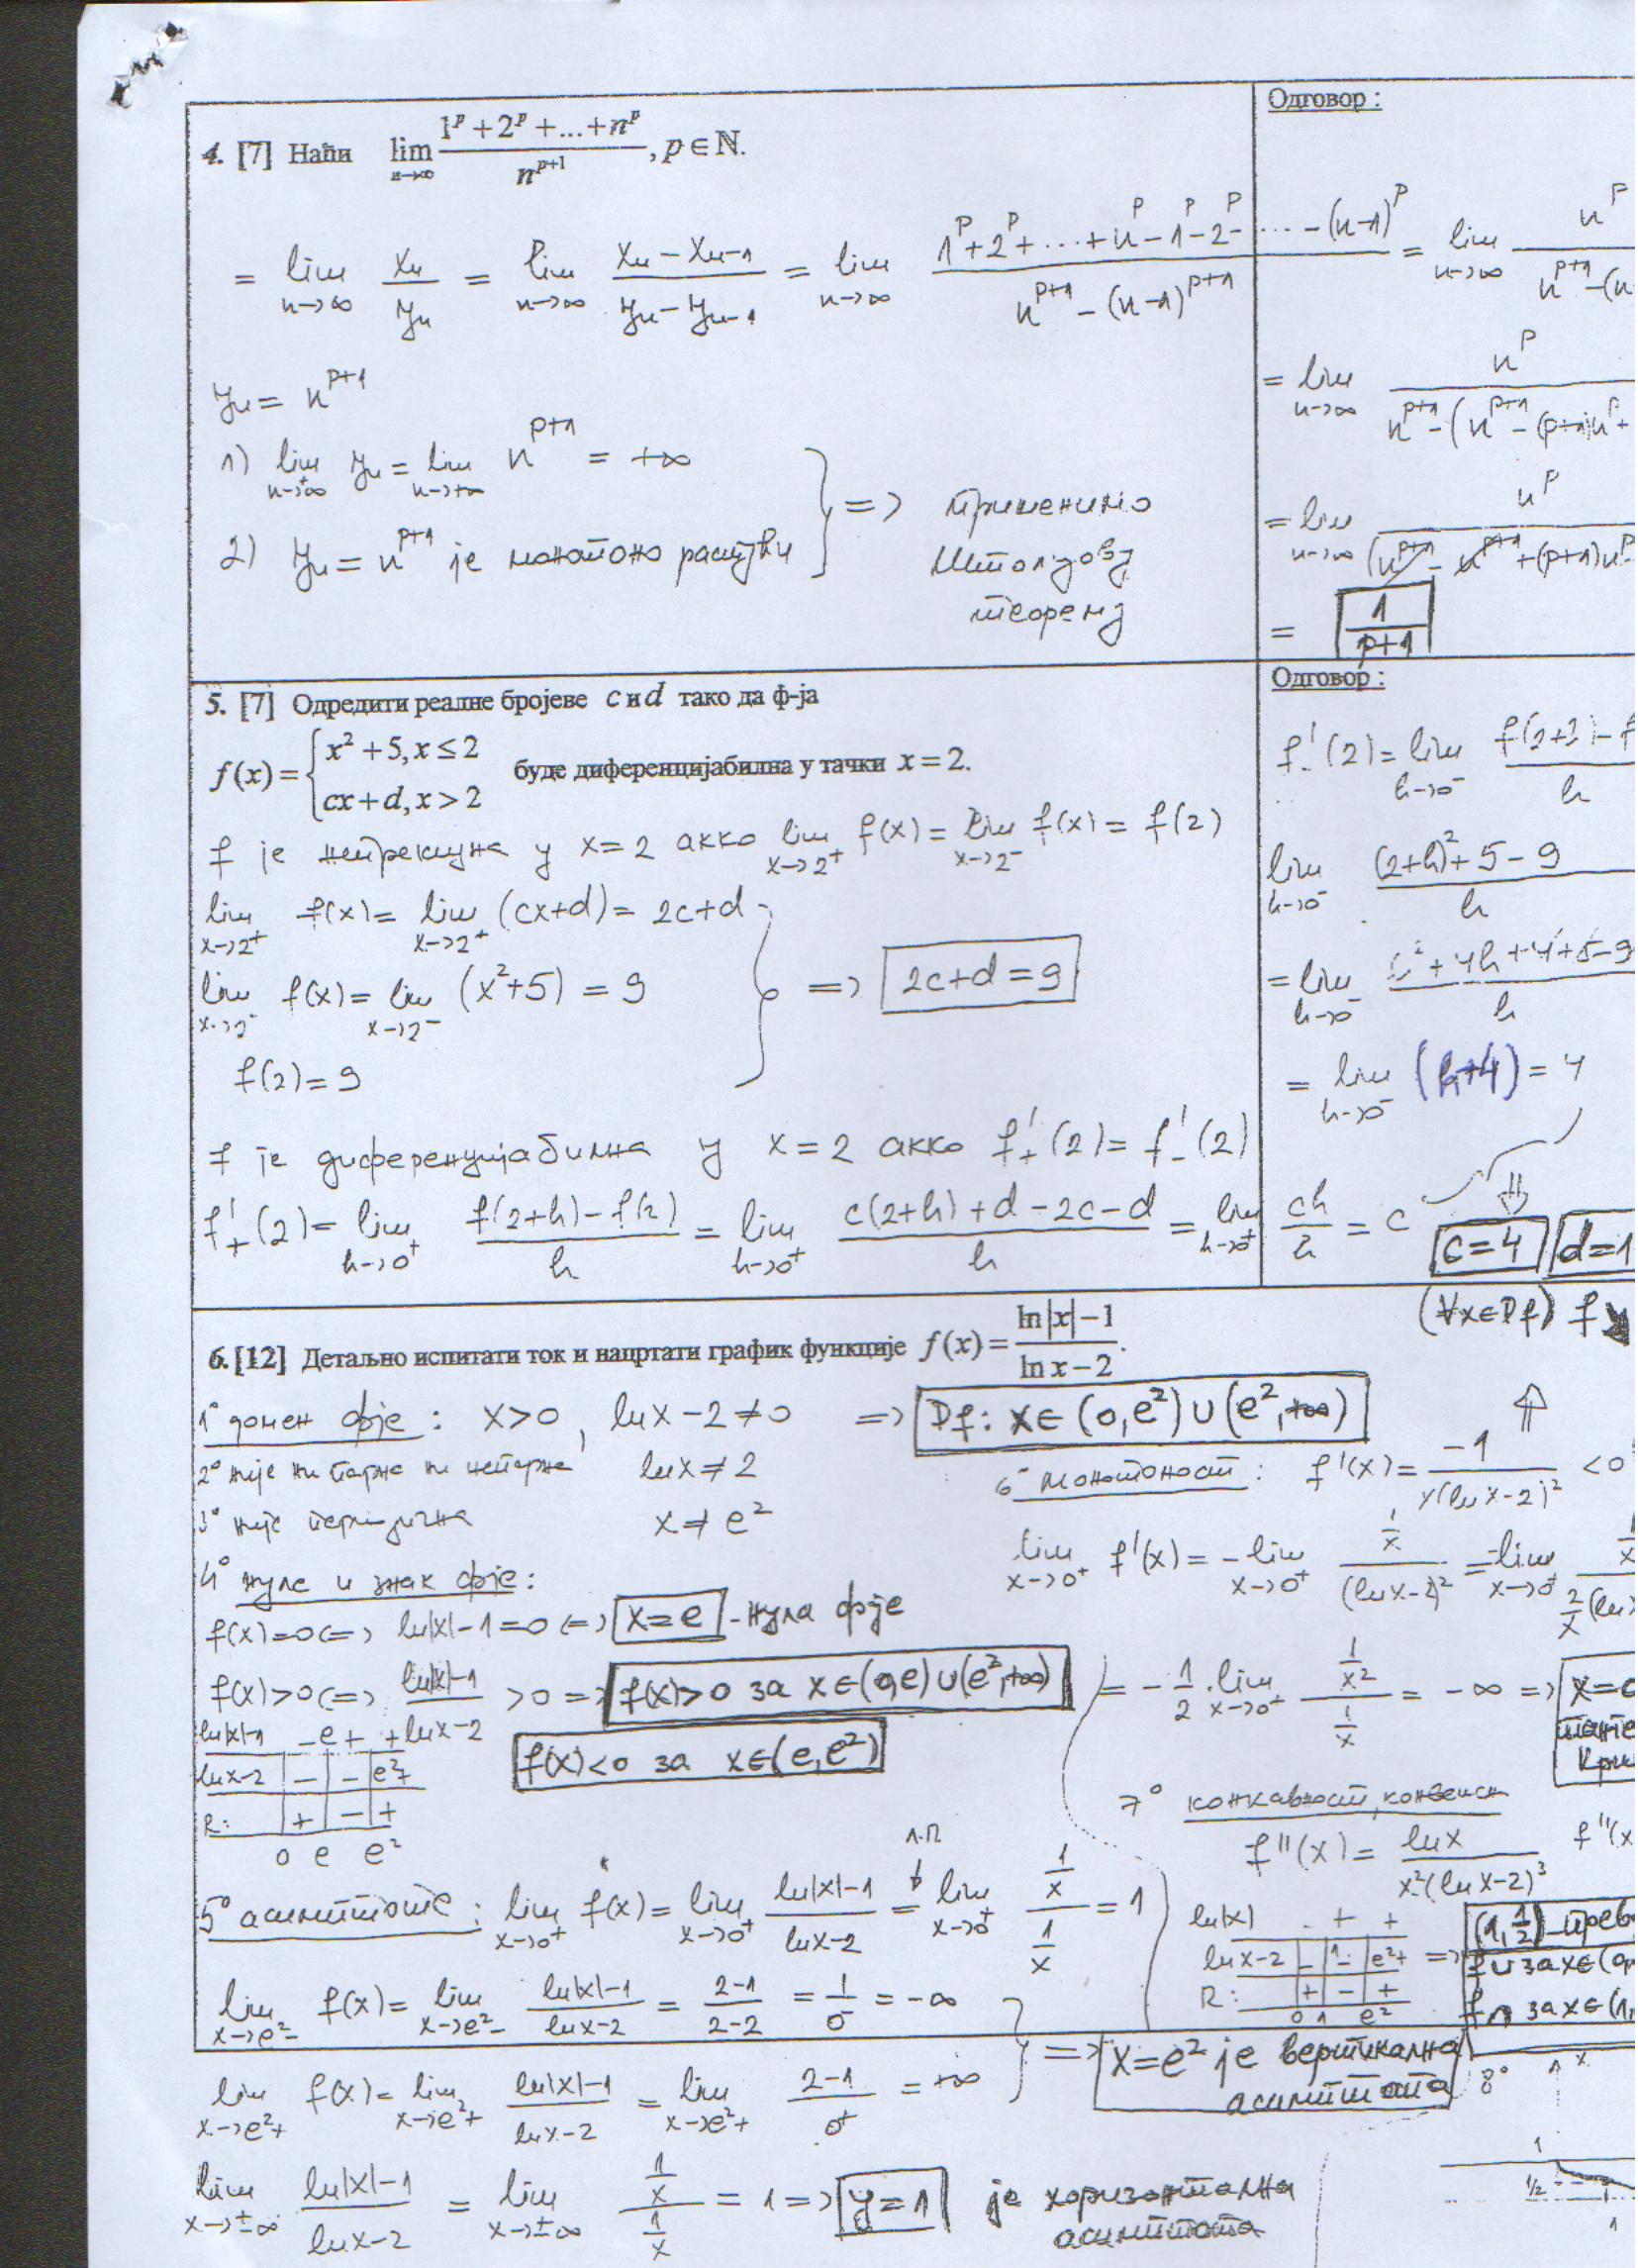 Одговор :
4. [7] Наћи lim n→∞ (1^p + 2^p + ... + n^p) / n^(p+1), p ∈ ℕ.
= lim n→∞ xn/yn = lim n→∞ (xn − xn-1)/(yn − yn-1) = lim n→∞ (1^p + 2^p + ... + n^p − 1^p − 2^p − ... − (n−1)^p) / (n^(p+1) − (n−1)^(p+1)) = lim n→∞ n^p / (n^(p+1) − (n
yn = n^(p+1)
= lim n→∞ n^p / (n^(p+1) − (n^(p+1) − (p+1)n^p +
1) lim n→+∞ yn = lim n→+∞ n^(p+1) = +∞
2) yn = n^(p+1) је монотоно растући
=> применимо
Штолцову
теорему
= lim n→∞ n^p / (n^(p+1) − n^(p+1) + (p+1)n^p
= 1/(p+1)
5. [7] Одредити реалне бројеве c и d тако да ф-ја
f(x) = { x² + 5, x ≤ 2
cx + d, x > 2 буде диференцијабилна у тачки x = 2.
f је непрекидна у x=2 акко lim x→2⁺ f(x) = lim x→2⁻ f(x) = f(2)
lim x→2⁺ f(x) = lim x→2⁺ (cx+d) = 2c+d
lim x→2⁻ f(x) = lim x→2⁻ (x²+5) = 9 => 2c+d=9
f(2)=9
f је диференцијабилна у x=2 акко f'₊(2) = f'₋(2)
f'₊(2) = lim h→0⁺ (f(2+h)−f(2))/h = lim h→0⁺ (c(2+h)+d−2c−d)/h = lim h→0⁺ ch/h = c
Одговор :
f'₋(2) = lim h→0⁻ h
lim h→0⁻ ((2+h)²+5−9)/h
= lim h→0⁻ (h²+4h+4+5−9)/h
= lim h→0⁻ (h+4) = 4
⇓
c=4 d=1
6. [12] Детаљно испитати ток и нацртати график функције f(x) = (ln|x| − 1)/(ln x − 2).
1° домен фје : x>0, lnx−2≠0 => Df: x∈(0,e²)∪(e²,+∞)
2° није ни парна ни непарна lnx≠2
3° није периодична x≠e²
4° нуле и знак фје:
f(x)=0 <=> ln|x|−1=0 <=> x=e - нула фје
f(x)>0 <=> (ln|x|−1)/(lnx−2) >0 => f(x)>0 за x∈(0,e)∪(e²,+∞)
ln|x|−1 − e + +
lnx−2 − − e² +
R: + − +
0 e e²
f(x)<0 за x∈(e,e²)
5° асимптоте: lim x→0⁺ f(x) = lim x→0⁺ (ln|x|−1)/(lnx−2) = Л.П lim x→0⁺ (1/x)/(1/x) = 1
lim x→e²₋ f(x) = lim x→e²₋ (ln|x|−1)/(lnx−2) = (2−1)/(2−2) = 1/0⁻ = −∞
lim x→e²₊ f(x) = lim x→e²₊ (ln|x|−1)/(lnx−2) = lim x→e²₊ (2−1)/0⁺ = +∞
=> x=e² је вертикална
асимптота
lim x→±∞ (ln|x|−1)/(lnx−2) = lim x→±∞ (1/x)/(1/x) = 1 => y=1 је хоризонтална
асимптота
(∀x∈Df) f↘
⇑
6° монотоност: f'(x) = −1/(x(lnx−2)²) <0
lim x→0⁺ f'(x) = −lim x→0⁺ (1/x)/(lnx−2)² = −lim x→0⁺
= −1/2 · lim x→0⁺ (1/x²)/(1/x) = −∞ =>
7° конкавност, конвексн
f''(x) = lnx/(x²(lnx−2)³) f''(x
ln(x) − + +
lnx−2 − 1 − e² +
R: + − +
0 1 e²
=> (1,1/2)
f∪ за x∈(
f∩ за x∈(1,
8°
1
1/2
1
1